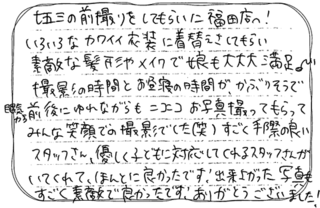 七五三の前撮りをしてもらいに福田店へ!
いろいろなカワイイ衣装に着替えさせてもらい
素敵な髪形やメイクで娘も大大大満足♪
撮影の時間とお昼寝の時間がかぶりそうで
眠気から前後にゆれながらもニコニコお写真撮ってもらって
みんな笑顔での撮影でした(笑)すごく手際の良い
スタッフさん、優しく子どもに対応してくれるスタッフさんが
いてくれて、ほんとに良かったです!出来上がった写真も
すごく素敵で良かったです!ありがとうございました!